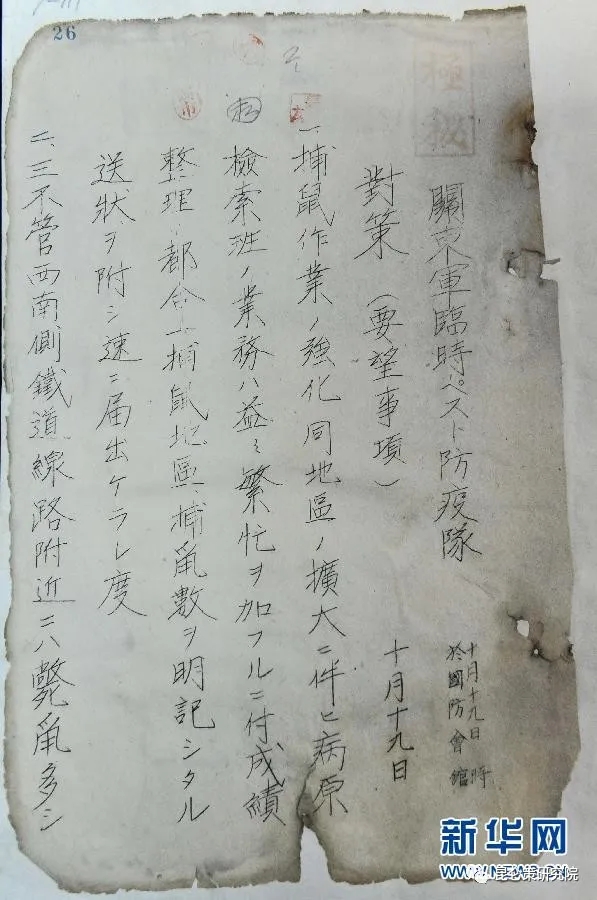 26
極秘
十月十九日 時
於國防會館
關東軍臨時ペスト防疫隊
對策(要望事項)
十月十九日
一、捕鼠作業ノ強化同地區ノ擴大ニ伴ヒ病原
檢索班ノ業務ハ益々繁忙ヲ加フルニ付成績
整理ノ都合上捕鼠地區、捕鼠數ヲ明記シタル
送狀ヲ附シ速ニ届出ケラレ度
二、三不管西南側鐵道線路附近ニハ斃鼠多シ
新华网
WWW.NEWS.CN
昆仑策研究院